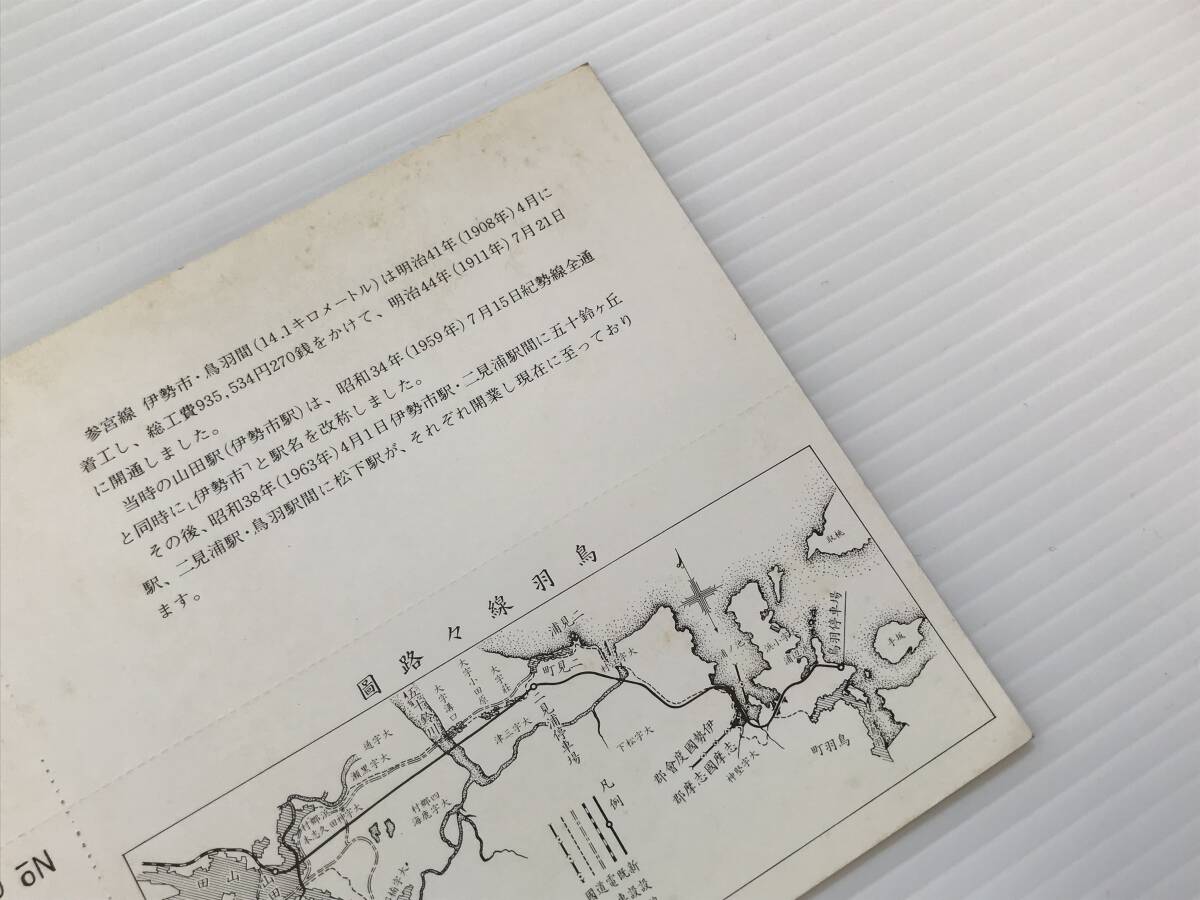 参宮線 伊勢市・鳥羽間(14.1キロメートル)は明治41年(1908年)4月に
着工し、総工費935,534円270銭をかけて、明治44年(1911年)7月21日
に開通しました。
当時の山田駅(伊勢市駅)は、昭和34年(1959年)7月15日紀勢線全通
と同時に「伊勢市」と駅名を改称しました。
その後、昭和38年(1963年)4月1日伊勢市駅・二見浦駅間に五十鈴ヶ丘
駅、二見浦駅・鳥羽駅間に松下駅が、それぞれ開業し現在に至っており
ます。
圖路々線羽鳥
取桃
手坂
鳥羽停車場
町羽鳥
浦見二
町見二
二見浦停車場
村
五十鈴川
大字溝口
大字小田原
大字荘
通字大
瀬黒字大
津三字大
下松字大
神堅字大
郡會度國勢伊
郡摩志國摩志
村郷四
海鹿字大
田山
凡例
新設
既設
電
國道
No